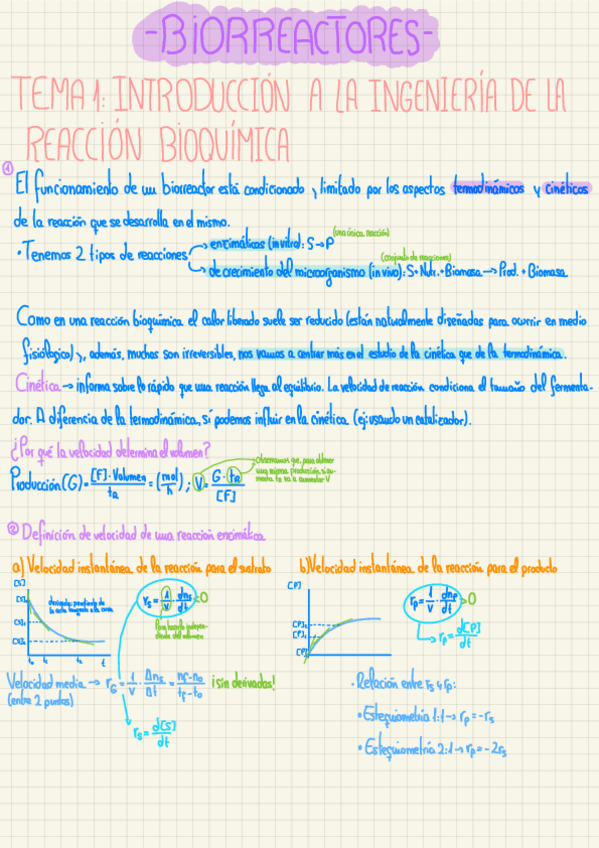 -BIORREACTORES-
TEMA 1: INTRODUCCIÓN A LA INGENIERÍA DE LA
REACCIÓN BIOQUÍMICA
① El funcionamiento de un biorreactor está condicionado y limitado por los aspectos termodinámicos y cinéticos
de la reacción que se desarrolla en el mismo.
(una única reacción)
• Tenemos 2 tipos de reacciones → enzimáticas (in vitro): S → P
(conjunto de reacciones)
→ de crecimiento del microorganismo (in vivo): S + Nutr. + Biomasa → Prod. + Biomasa
Como en una reacción bioquímica el calor liberado suele ser reducido (están naturalmente diseñadas para ocurrir en medio
fisiológico) y, además, muchas son irreversibles, nos vamos a centrar más en el estudio de la cinética que de la termodinámica.
Cinética → informa sobre lo rápido que una reacción llega al equilibrio. La velocidad de reacción condiciona el tamaño del fermenta-
dor. A diferencia de la termodinámica, sí podemos influir en la cinética (ej: usando un catalizador).
¿Por qué la velocidad determina el volumen?
Producción (G) = [F] · Volumen / tR = (mol / h) ; V = G · tR / [F]
Observamos que, para obtener
una misma producción, si au-
menta tR va a aumentar V
② Definición de velocidad de una reacción enzimática
a) Velocidad instantánea de la reacción para el sustrato
[S]
[S]₀
[S]₁
[S]₂
t₀ t₁ t₂ t
derivada: pendiente de
la recta tangente a la curva
rs = 1/V · dns/dt < 0
Para hacerlo indepen-
diente del volumen
Velocidad media → rG = 1/V · Δns/Δt = nf - n0 / tf - t0 ¡sin derivadas!
(entre 2 puntos)
rs = d[S]/dt
b) Velocidad instantánea de la reacción para el producto
[P]
[P]₂
[P]₁
[P]
rp = 1/V · dnp/dt > 0
rp = d[P]/dt
· Relación entre rs y rp:
• Estequiometría 1:1 → rp = -rs
• Estequiometría 2:1 → rp = -2rs